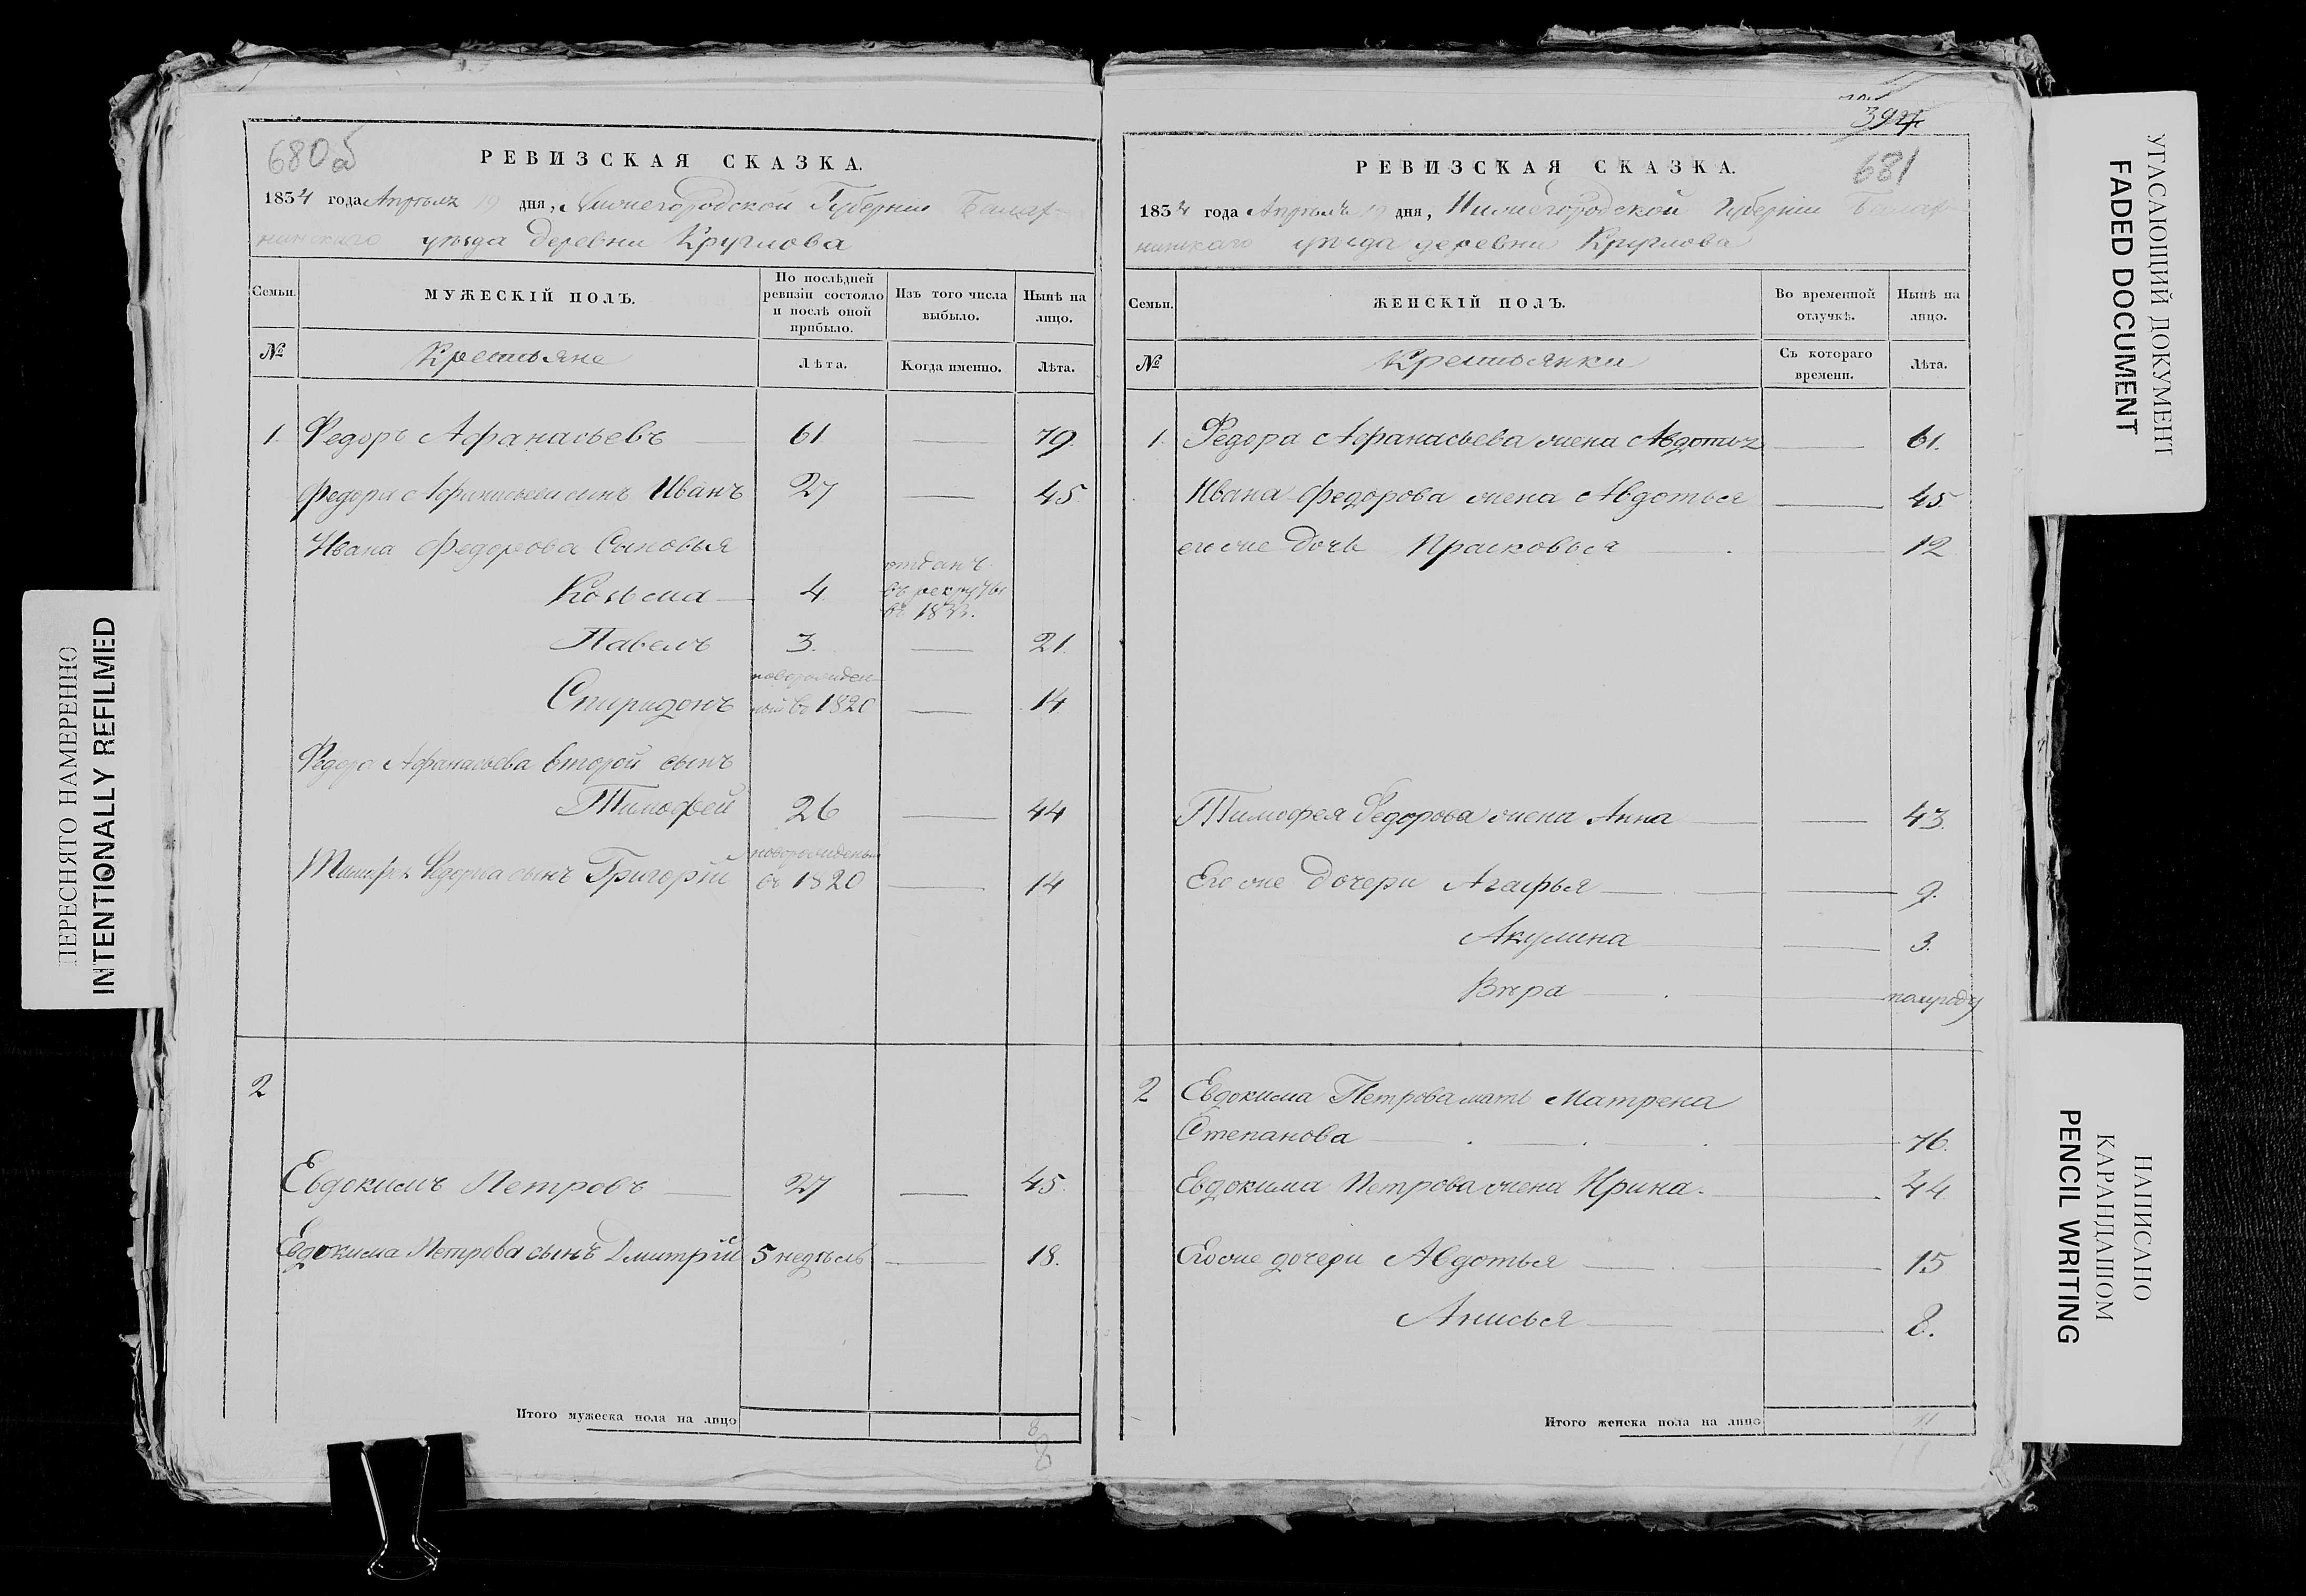 680об
РЕВИЗСКАЯ СКАЗКА.
1834 года Апрѣля 19 дня, Нижегородской Губерніи Балах-
нинскаго уѣзда деревни Круглова
Семьи.
МУЖЕСКІЙ ПОЛЪ.
По послѣдней ревизіи состояло и послѣ оной прибыло.
Изъ того числа выбыло.
Нынѣ на лицо.
№
Крестьяне
Лѣта.
Когда именно.
Лѣта.
1. Федоръ Афанасьевъ — 61 — 79.
Федора Афанасьева сынъ Иванъ 27 — 45.
Ивана Федорова Сыновья
Козьма — 4 отданъ въ рекруты въ 1833.
Павелъ 3. — 21.
Спиридонъ новорожден-ный въ 1820 — 14
Федора Афанасьева второй сынъ
Тимофей 26 — 44
Тимофея Федорова сынъ Григорій новорожденъ въ 1820 — 14
2
Евдокимъ Петровъ — 27 — 45
Евдокима Петрова сынъ Дмитрій 5 недѣль — 18.
Итого мужеска пола на лицо 8
8
394
681
РЕВИЗСКАЯ СКАЗКА.
1834 года Апрѣля 19 дня, Нижегородской Губерніи Балах-
нинскаго уѣзда деревни Круглова
Семьи.
ЖЕНСКІЙ ПОЛЪ.
Во временной отлучкѣ.
Нынѣ на лицо.
№
Крестьянки
Съ котораго времени.
Лѣта.
1. Федора Афанасьева жена Авдотья — 61.
Ивана Федорова жена Авдотья — 45.
его же Дочь Прасковья — 12
Тимофея Федорова жена Анна — 43.
Его же Дочери Агафья — 9.
Акулина — 3.
Вѣра — полугоду
2 Евдокима Петрова мать Матрена
Степанова — 76.
Евдокима Петрова жена Ирина. — 44
Его же дочери Авдотья — 15
Анисья — 8.
Итого женска пола на лицо 11
11
ПЕРЕСНЯТО НАМЕРЕННО
INTENTIONALLY REFILMED
УГАСАЮЩИЙ ДОКУМЕНТ
FADED DOCUMENT
НАПИСАНО
КАРАНДАШОМ
PENCIL WRITING